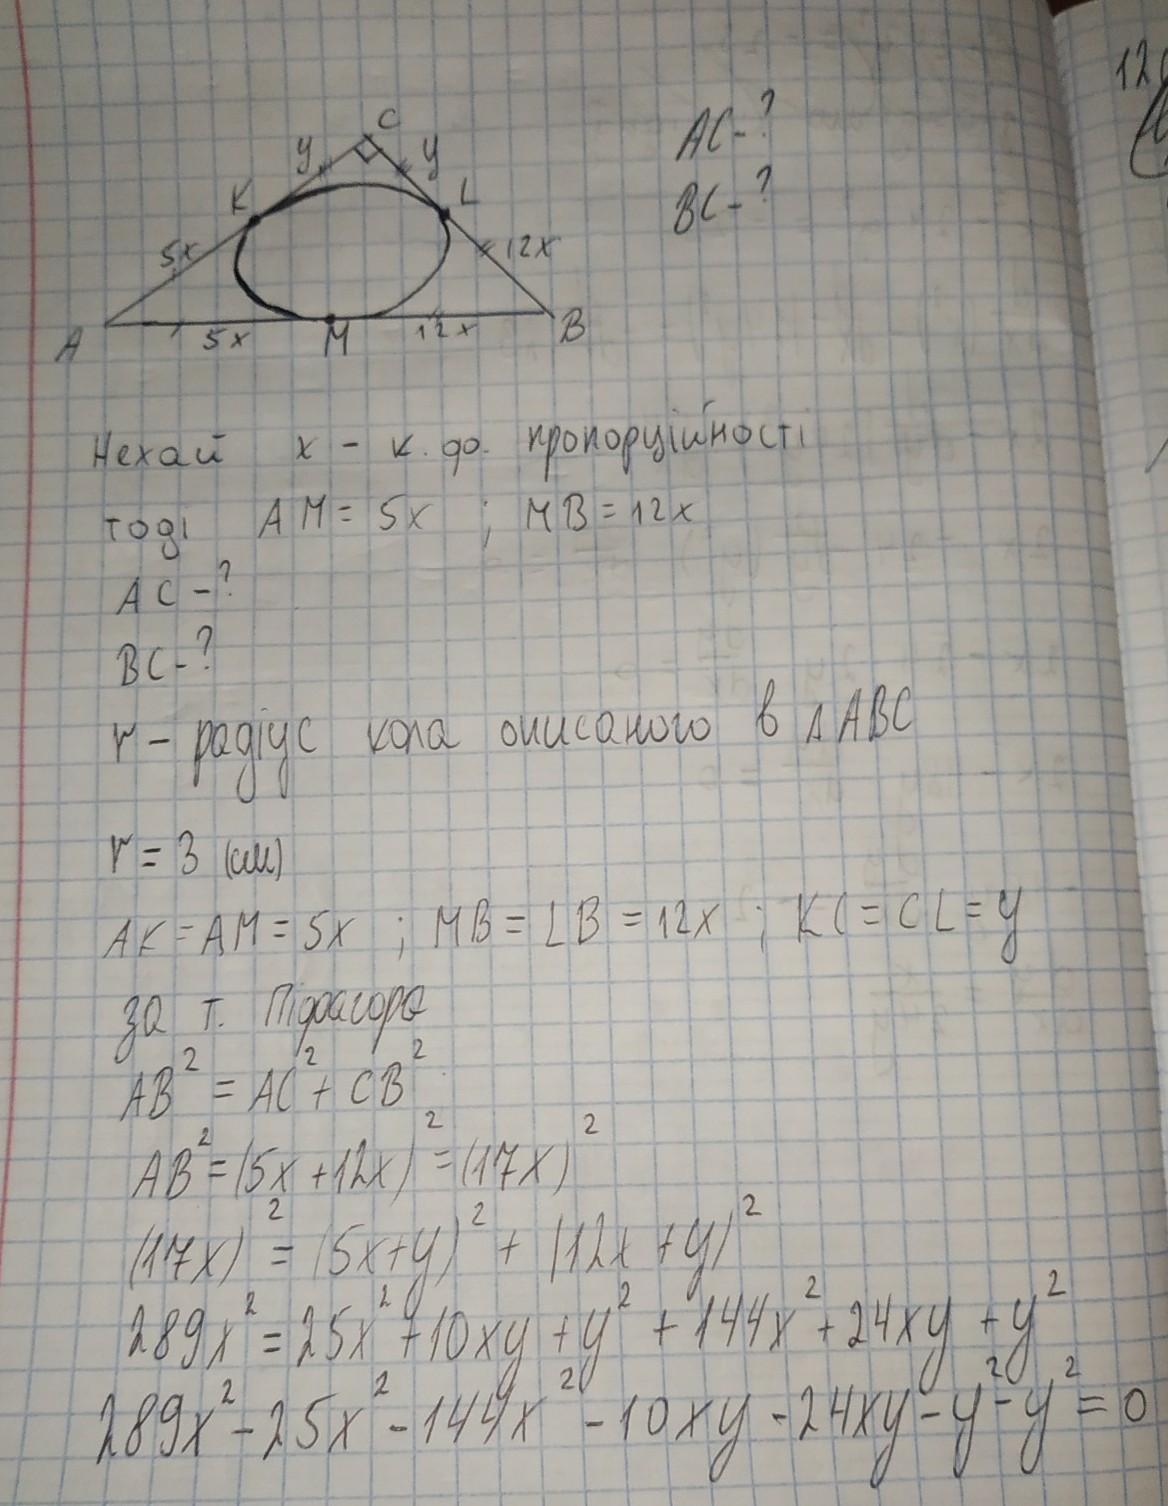 C
y y
K L
5x 12x
A 5x M 12x B
AC-?
BC-?
12
Нехай x - к. до. пропорційності
тоді AM = 5x ; MB = 12x
AC-?
BC-?
r - радіус кола описаного в △ABC
r = 3 (см)
AK = AM = 5x ; MB = LB = 12x ; KC = CL = y
за т. Підфагора
AB² = AC² + CB²
AB² = (5x + 12x)² = (17x)²
(17x)² = (5x+y)² + (12x+y)²
289x² = 25x² + 10xy + y² + 144x² + 24xy + y²
289x² - 25x² - 144x² - 10xy - 24xy - y² - y² = 0